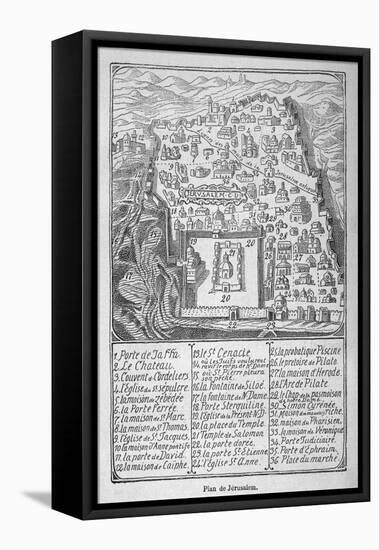 JERUSALEM C.D
1. Porte de Jaffa.
2. Le Chateau.
3. Couvent d. Cordeliers
4. l'Eglise du St. sépulcre.
5. la maison de zébédée
6. la Porte Ferrée.
7. la maison de St. Marc.
8. la maison de St. Thomas.
9. l'Eglise de St. Jacques.
10. la maison d'Anne pontife
11. la porte de David.
12. la maison de Caïphe.
13. le St. Cenacle
14. où les Juifs voulurent
ravir le corps de N. Dame
15. où St. Pierre pleura
son péché.
16. la Fontaine de Siloé.
17. la fontaine de N. Dame
18. Porte Sterquiline.
19. l'Eglise de la
20. la place du Temple.
21. Temple de Salomon
22. la porte dorée.
23. la porte St. Etienne
24. l'Eglise St. Anne.
25. la probatique Piscine
26. le pretoire de Pilate
27. la maison d'Herode.
28. l'Arc de Pilate
29. le lieu de la pasmoison
30. Simon Cyrénée.
31. Maison du mauvais riche.
32. maison du Pharisien
33. la maison de Véronique
34. Porte Judiciaire.
35. Porte d'Ephraim.
36. Place du marché
Plan de Jérusalem.